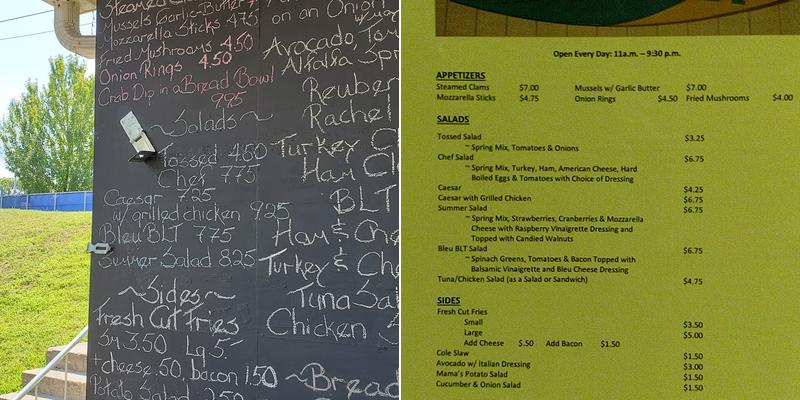 Steamed Clams
Mussels Garlic Butter 7
Mozzarella Sticks 4.75
Fried Mushrooms 4.50
Onion Rings 4.50
Crab Dip in a Bread Bowl
9.95
~Salads~
Tossed 4.50
Chef 7.75
Caesar 7.25
w/ grilled chicken 9.25
Bleu BLT 7.75
Summer Salad 8.25
~Sides~
Fresh Cut Fries
Sm 3.50 Lg 5.-
+cheese .50, bacon 1.50
Potato Salad 2.50
on an Onion
Avocado, Tom
Alfalfa Spr
Reuben
Rachel
Turkey C
Ham Ch
BLT
Ham & Che
Turkey &
Tuna Sal
Chicken S
~Bread
Open Every Day: 11a.m. – 9:30 p.m.
APPETIZERS
Steamed Clams $7.00 Mussels w/ Garlic Butter $7.00
Mozzarella Sticks $4.75 Onion Rings $4.50 Fried Mushrooms $4.00
SALADS
Tossed Salad $3.25
~ Spring Mix, Tomatoes & Onions
Chef Salad $6.75
~ Spring Mix, Turkey, Ham, American Cheese, Hard
Boiled Eggs & Tomatoes with Choice of Dressing
Caesar $4.25
Caesar with Grilled Chicken $6.75
Summer Salad $6.75
~ Spring Mix, Strawberries, Cranberries & Mozzarella
Cheese with Raspberry Vinaigrette Dressing and
Topped with Candied Walnuts
Bleu BLT Salad $6.75
~ Spinach Greens, Tomatoes & Bacon Topped with
Balsamic Vinaigrette and Bleu Cheese Dressing
Tuna/Chicken Salad (as a Salad or Sandwich) $4.75
SIDES
Fresh Cut Fries
Small $3.50
Large $5.00
Add Cheese $.50 Add Bacon $1.50
Cole Slaw $1.50
Avocado w/ Italian Dressing $3.00
Mama's Potato Salad $1.50
Cucumber & Onion Salad $1.50